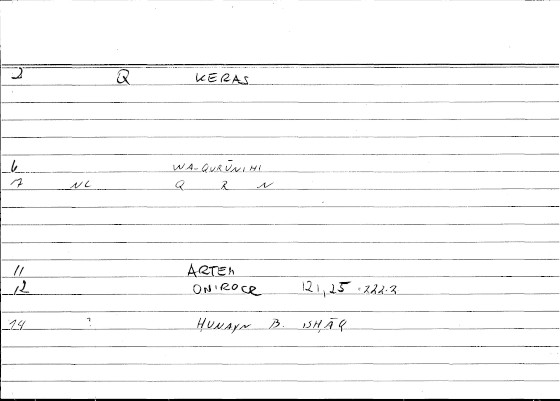 2 Q KERAS
6 WA-QURŪNIHI
7 NC Q R N
11 ARTEM
12 ONIROCR 121,25 · 222.2
14 ? ḤUNAYN B. ISḤĀQ